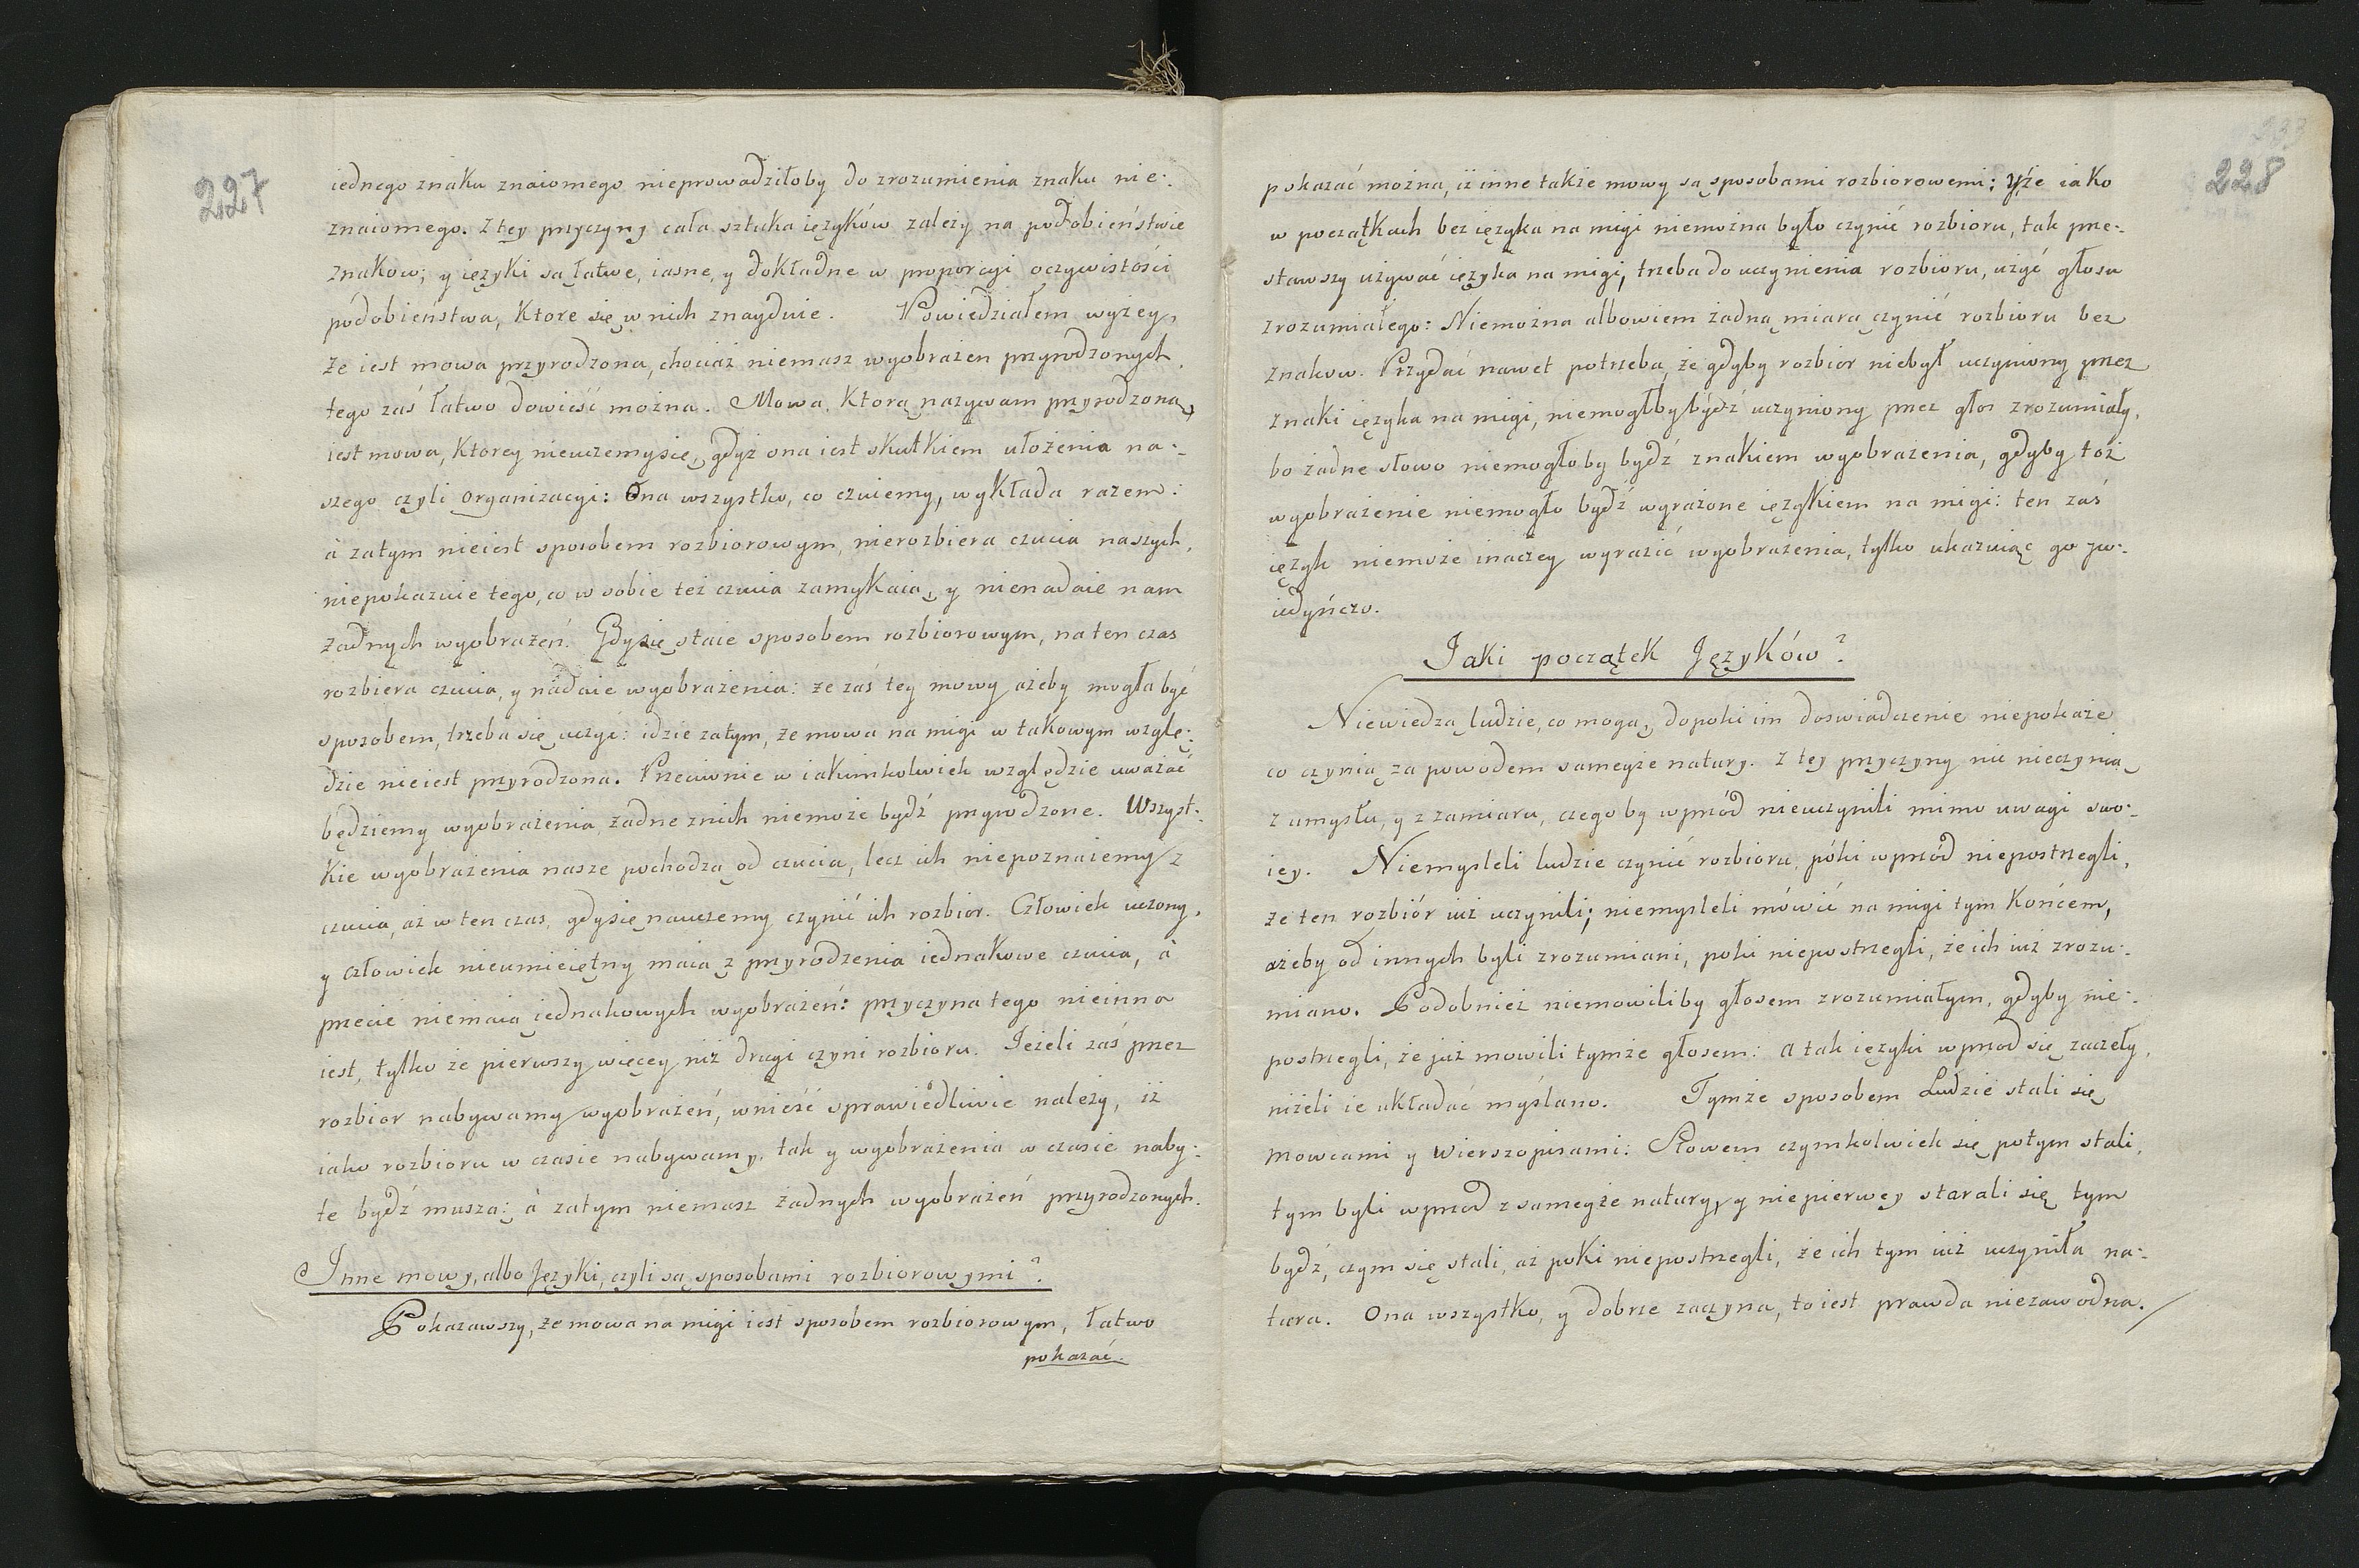 227
iednego znaku znaiomego nieprowadziłoby do zrozumienia znaku nie-:
znaiomego. Z tey przyczyny cała sztuka ięzyków zależy na podobieństwie
znakow; y ięzyki są łatwe, iasne, y dokładne w proporcyi oczywistości
podobieństwa, ktore się w nich znayduie. Powiedziałem wyżey,
że iest mowa przyrodzona, chociaż niemasz wyobrażen przyrodzonych,
tego zaś łatwo dowieść można. Mowa, ktorą nazywam przyrodzoną,
iest mowa, ktorey nieuczemysię, gdyż ona iest skutkiem ułożenia na-:
szego czyli organizacyi: Ona wszystko, co czuiemy, wykłada razem:
à zatym nieiest sposobem rozbiorowym, nierozbiera czucia naszych,
niepokazuie tego, co w sobie też czucia zamykaią, y nienadaie nam
żadnych wyobrażeń. Gdysię staie sposobem rozbiorowym, na ten czas
rozbiera czucia, y nadaie wyobrażenia: że zaś tey mowy ażeby mogła być
sposobem, trzeba się uczyć: idzie zatym, że mowa na migi w takowym wzglę-:
dzie nieiest przyrodzona. Przeciwnie w iakimkolwiek względzie uważać
będziemy wyobrażenia, żadne znich niemoże bydź przyrodzone. Wszyst-:
kie wyobrażenia nasze pochodzą od czucia, lecz ich niepoznaiemy z
czucia, aż w ten czas, gdysię nauczemy czynić ich rozbior. Człowiek uczony,
y człowiek nieumieiętny maią z przyrodzenia iednakowe czucia, à
przecie niemaią iednakowych wyobrażeń: przyczyna tego nieinna
iest, tylko że pierwszy więcey niż drugi czyni rozbioru. Jeżeli zaś przez
rozbior nabywamy wyobrażeń, wnieść sprawiedliwie należy, iż
iako rozbioru w czasie nabywamy, tak y wyobrażenia w czasie naby-:
te bydź muszą: à zatym niemasz żadnych wyobrażeń przyrodzonych.
Inne mowy, albo Języki, czyli są sposobami rozbiorowymi?
Pokazawszy, że mowa na migi iest sposobem rozbiorowym, łatwo
pokazać.
228
pokazać można, iż inne także mowy są sposobami rozbiorowemi; Yże iako
w początkach bez ięzyka na migi niemożna było czynić rozbioru, tak prze-:
stawszy używać ięzyka na migi, trzeba do uczynienia rozbioru, użyć głosu
zrozumiałego: Niemożna albowiem żadną miarą czynić rozbioru bez
znakow. Przydać nawet potrzeba, że gdyby rozbior niebył uczyniony przez
znaki ięzyka na migi, niemogłby bydź uczyniony przez głos zrozumiały,
bo żadne słowo niemogłoby bydź znakiem wyobrażenia, gdyby toż
wyobrażenie niemogło bydź wyrażone ięzykiem na migi: ten zaś
ięzyk niemoże inaczey wyrazić wyobrażenia, tylko ukazuiąc go po-:
iedyńczo.
Jaki początek Języków?
Niewiedzą ludzie, co mogą, dopoki im doswiadczenie niepokaże
co czynią za powodem sameyże natury. Z tey przyczyny nic nieczynią
z umysłu, y z zamiaru, czegoby wprzód nieuczynili mimo uwagi swo-:
iey. Niemysleli ludzie czynić rozbioru, póki wprzód niepostrzegli,
że ten rozbiór iuż uczynili; niemysleli mówić na migi tym końcem,
ażeby od innych byli zrozumiani, poki niepostrzegli, że ich iuż zrozu-:
miano. Podobnież niemowiliby głosem zrozumiałym, gdyby nie-:
postrzegli, że już mowili tymże głosem: a tak ięzyki wprzod się zaczeły,
niżeli ie układać myślano. Tymże sposobem Ludzie stali się
mowcami y Wierszopisami: Słowem czymkolwiek się potym stali,
tym byli wprzod z sameyże natury, y niepierwey starali się tym
bydź, czym się stali, aż poki niepostrzegli, że ich tym iuż uczyniła na-:
tura. Ona wszystko, y dobrze zaczyna, to iest prawda niezawodna.